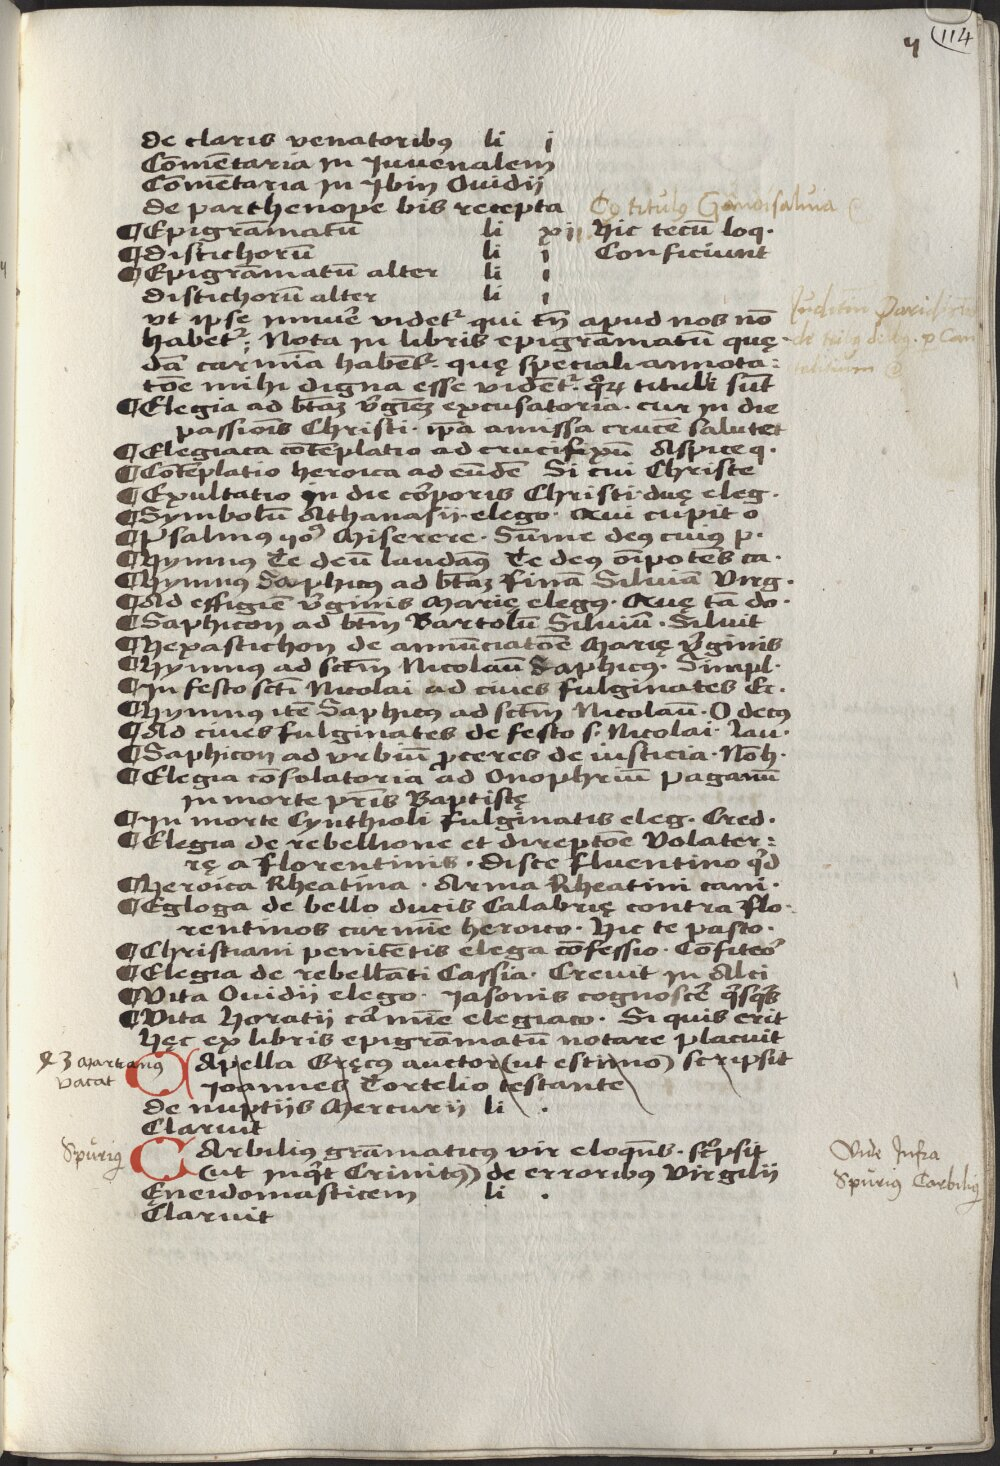 114
de claris venatoribꝰ li i
Com̄ētaria in Iuvenalem
Com̄ētaria in Ibin Ouidij
de parthenope bis recepta
¶Epigrāmatū li xii Hic tecū loq.
¶distichorū li i Conficiunt
¶Epigrāmatū alter li i
distichorū alter li i
vt ipse innuē videt᷑ qui tn̄ apud nos nō
habet᷑: Nota in libris epigrāmatū quę
dā carmīa habēt᷑ quę speciali annota:
tōe mihi digna esse vidēt᷑. q̄ꝝ tituli sūt
¶Elegia ad btāȝ v̄gīeȝ excusatoria. cur in die
passiōis Christi. ip̄a amissa crucē salutet
¶Elegiaca cōtēplatio ad crucifixū Aspice q.
¶Cōtēplatio heroica ad eūdē Si cui Christe
¶Exultatio in die cōrporis Christi duę eleg.
¶Symbolū Athanasij elego. Qui cupit o
¶Psalmꝰ Miserere. Sūme deꝰ cuiꝰ p.
¶Hymnꝰ Te deū laudāꝰ Te deꝰ oīpotēs ca.
¶Hymnꝰ Saphicꝰ ad btāȝ finā Siluiā Virg.
¶Ad effigiē v̄ginis Marię elegꝰ. Quę tā do.
¶Saphicon ad btīm Bartolū Siluiū. Siluit
¶Hexastichon de annūciatōe Marię v̄ginis
¶Hymnꝰ ad sctīm Nicolaū Saphicꝰ. Simpl.
¶In festo sctī Nicolai ad ciues fulginates Ec.
¶Hymnꝰ itē Saphicꝰ ad sctīm Nicolaū. O decꝰ
¶Ad ciues fulginates de festo s. Nicolai. Lau.
¶Saphicon ad vrbiū p̄ceres de iusticia. Nōh.
¶Elegia cōsolatoria ad Onophriū paganū
in morte pr̄is Baptistę
¶In morte Cynthioli fulginatis eleg. Cred.
¶Elegia de rebellione et direptōe Volater:
rę a florentinis. Disce fluentino q̄d
¶Heroica Rheatina. Arma Rheatini cani.
¶Egloga de bello ducis Calabrię contra flo.
rentinos carmīe heroico. Hic te pasto.
¶Christiani penitētis elega cōfessio. Cōfiteor
¶Elegia de rebellāti Cassia. Creuit in Alti
¶Vita Ouidij elego. Iasonis cognoscē q̄sq̄s
¶Vita Horatij carmīe elegiaco. Si quis erit
Hęc ex libris epigrāmatū notare placuit
Martianꝰ
vacat
CApella Gręcꝰ auctor (ut estimo) scripsit
Ioannes Tortelio testante
de nuptijs Mercurij li .
Claruit
Spuriꝰ
CArbiliꝰ grāmaticꝰ vir eloq̄ns. sc̄psit
(ut inq̄t Crinitꝰ) de erroribꝰ Virgilij
Eneidomasticem li .
Claruit
Vide Infra
Spuriꝰ Carbiliꝰ